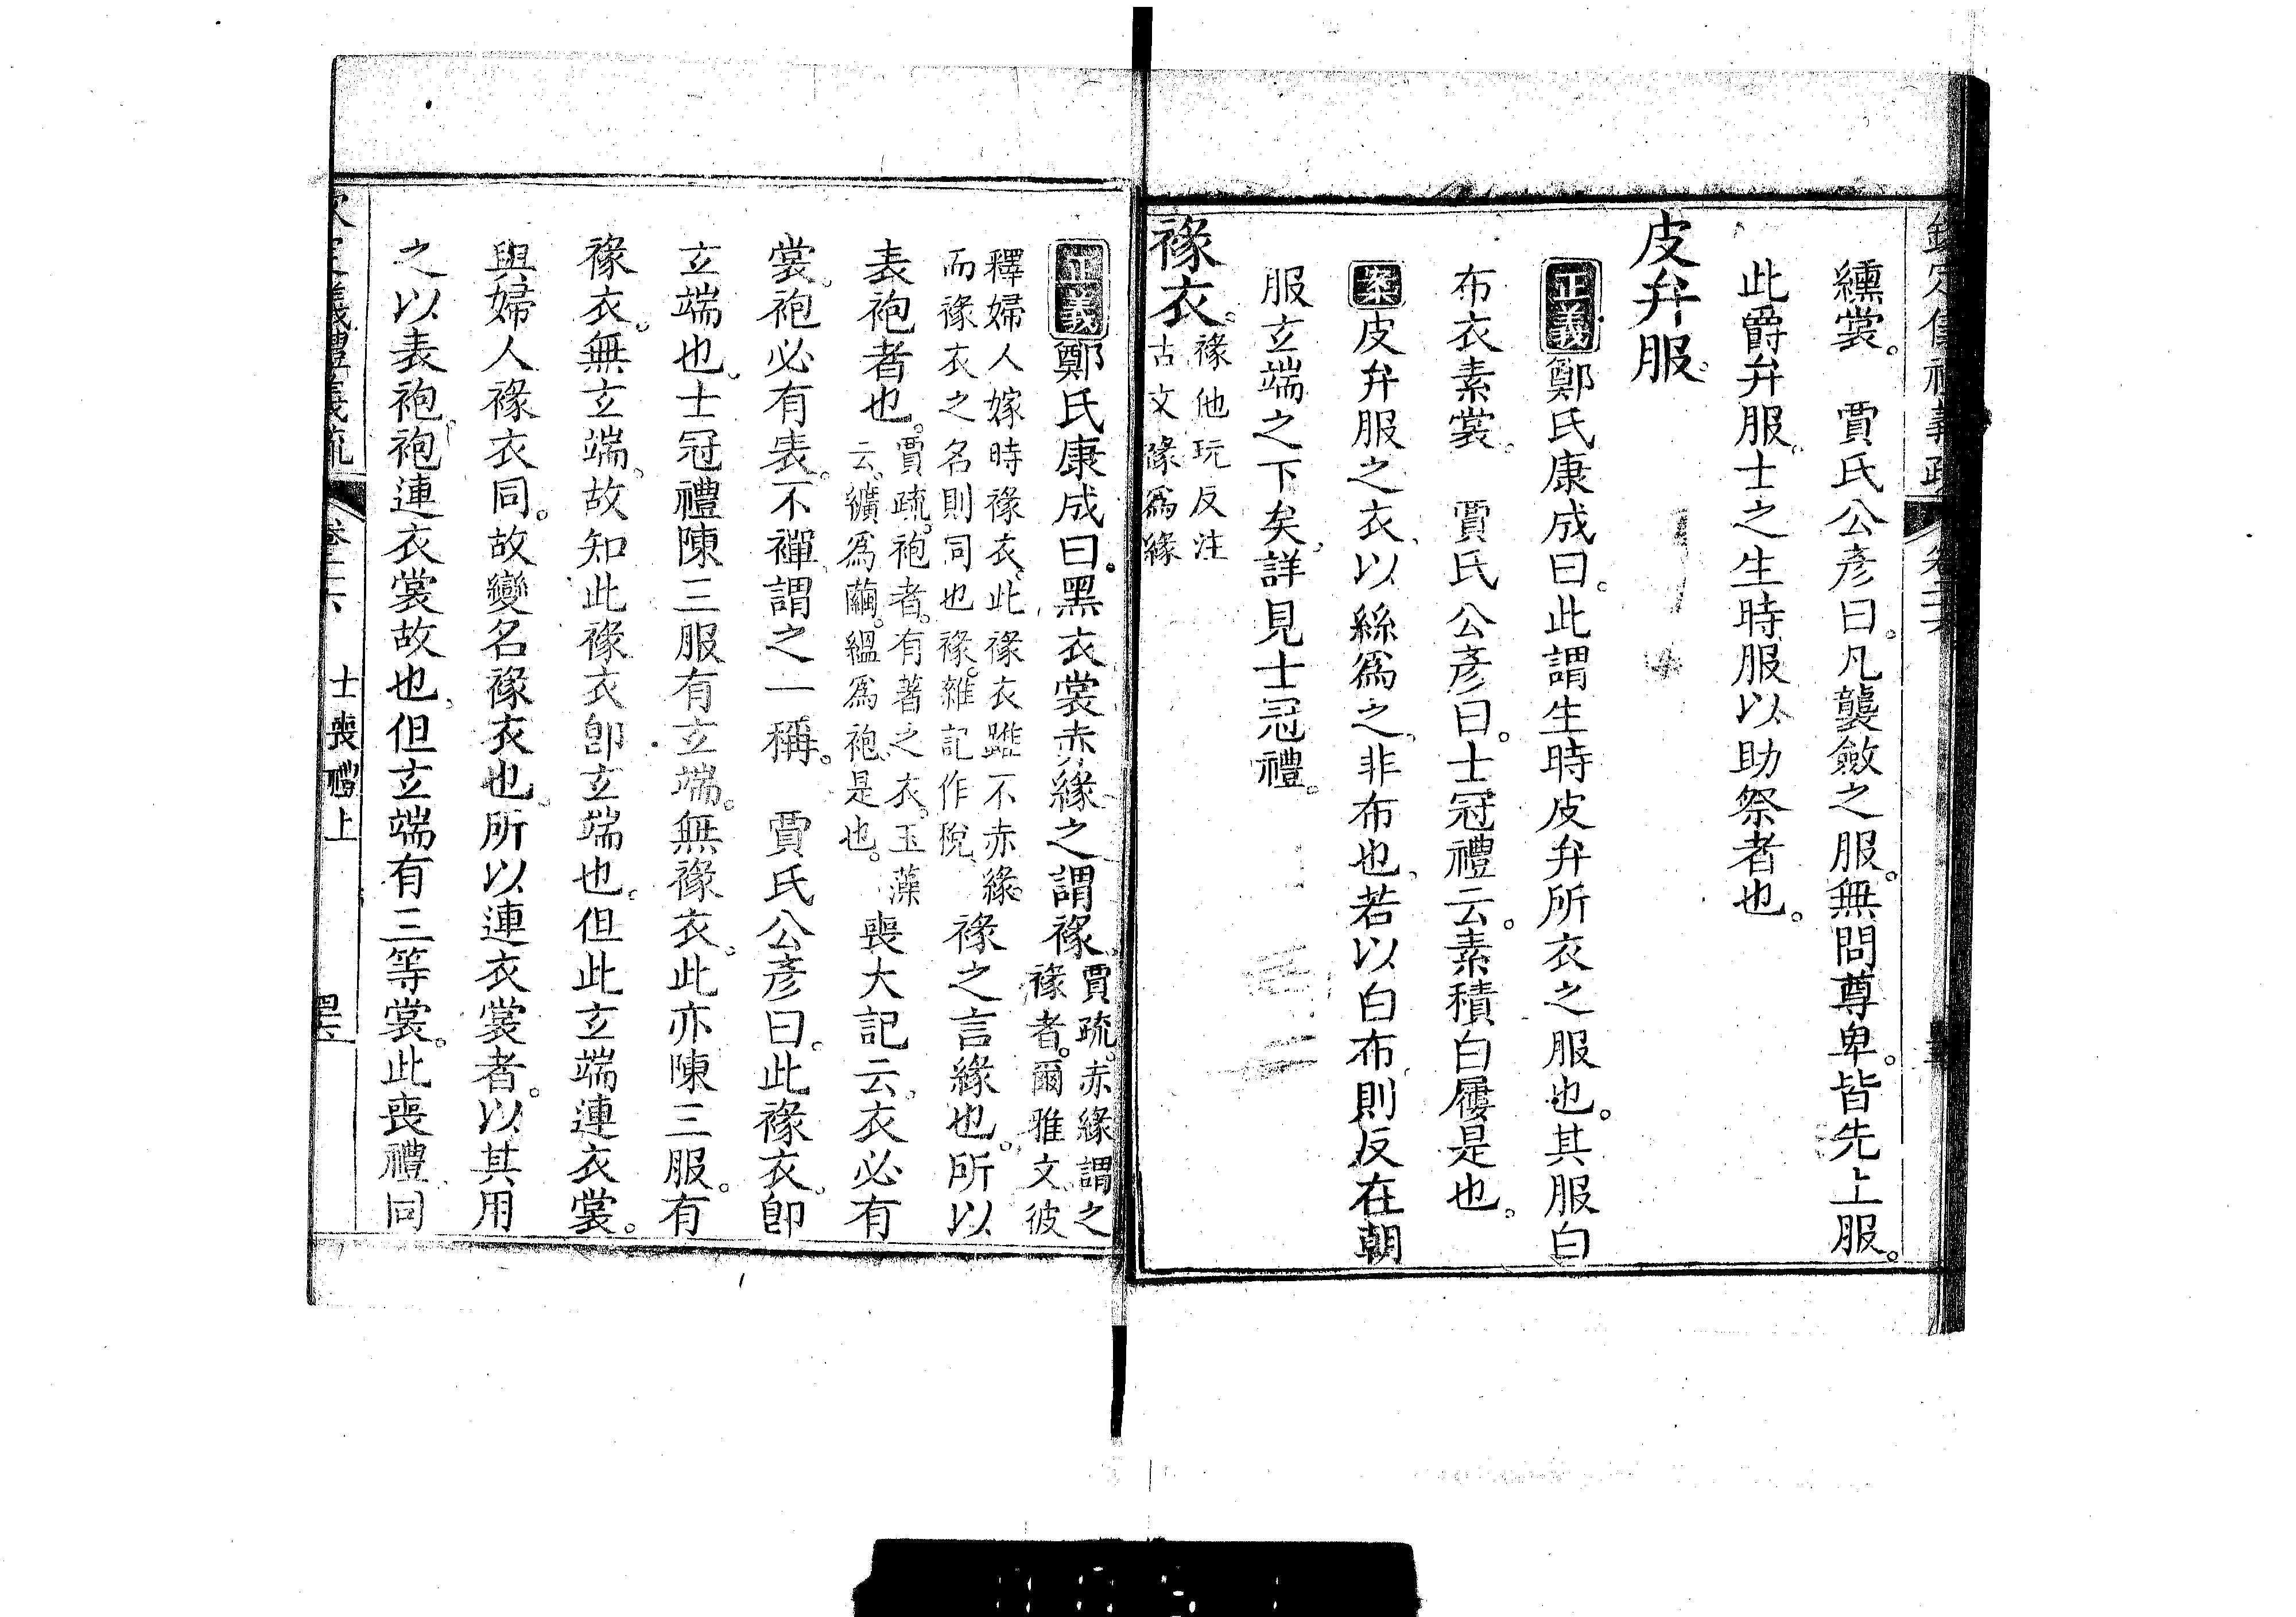 纁裳。　賈氏公彥曰。凡襲斂之服。無問尊卑。皆先上服。
此爵弁服。士之生時服以助祭者也。
皮弁服。
正義鄭氏康成曰。此謂生時皮弁所衣之服也。其服白
布衣素裳。　賈氏公彥曰。士冠禮云。素積白屨是也。
案皮弁服之衣、以絲爲之、非布也、若以白布則反在朝
服玄端之下矣、詳見士冠禮。
褖衣。
褖他玩反注
古文褖爲緣
正義鄭氏康成曰。黑衣裳赤緣之謂褖、
賈疏。赤緣謂之
褖者。爾雅文、彼
釋婦人嫁時褖衣。此褖衣雖不赤緣。
而褖衣之名則同也
褖。雜記作稅、
褖之言緣也。所以
表袍者也。
賈疏。袍者。有著之衣。玉藻
云、纊爲繭。縕爲袍、是也。
喪大記云。衣必有
裳。袍必有表。不襌、謂之一稱。　賈氏公彥曰。此褖衣、卽
玄端也、士冠禮陳三服有玄端。無褖衣。此亦陳三服。有
褖衣。無玄端、故知此褖衣卽玄端也。但此玄端連衣裳。
與婦人褖衣同。故變名褖衣也、所以連衣裳者。以其用
之以表袍。袍連衣裳故也、但玄端有三等裳。此喪禮、同
士喪禮上